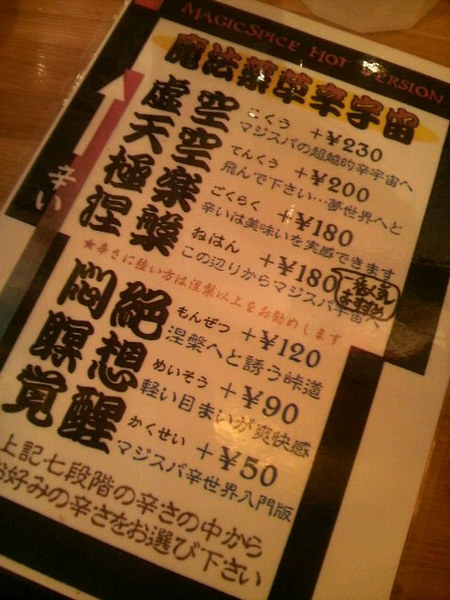 MAGICSPICE HOT VERSION
魔法薬草辛宇宙
辛い
虚空 こくう +¥230
マジスパの超越的辛宇宙へ
天空 てんくう +¥200
飛んで下さい…夢世界へと
極楽 ごくらく +¥180
辛いは美味いを実感できます
涅槃 ねはん +¥180
この辺りからマジスパ宇宙へ
一番人気
おすすめ
★辛さに強い方は涅槃以上をお勧めします
悶絶 もんぜつ +¥120
涅槃へと誘う峠道
瞑想 めいそう +¥90
軽い目まいが爽快感
覚醒 かくせい +¥50
マジスパ辛世界入門版
上記七段階の辛さの中から
お好みの辛さをお選び下さい